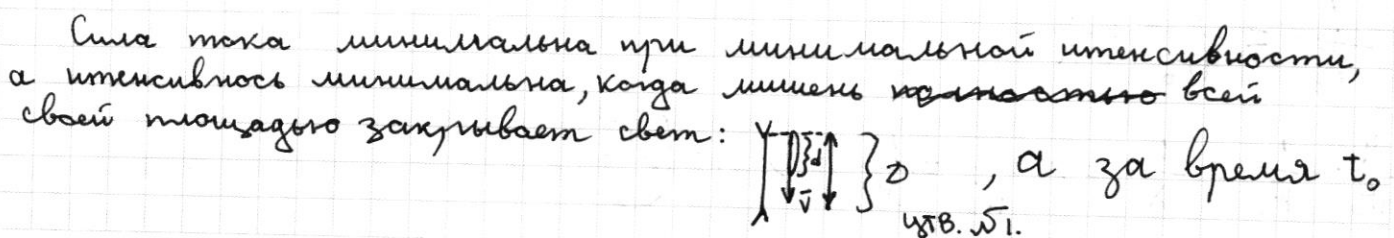 Сила тока минимальна при минимальной итенсивности,
а итенсивнось минимальна, когда мишень полностью всей
своей площадью закрывает свет: d v D , а за время t₀
утв. №1.